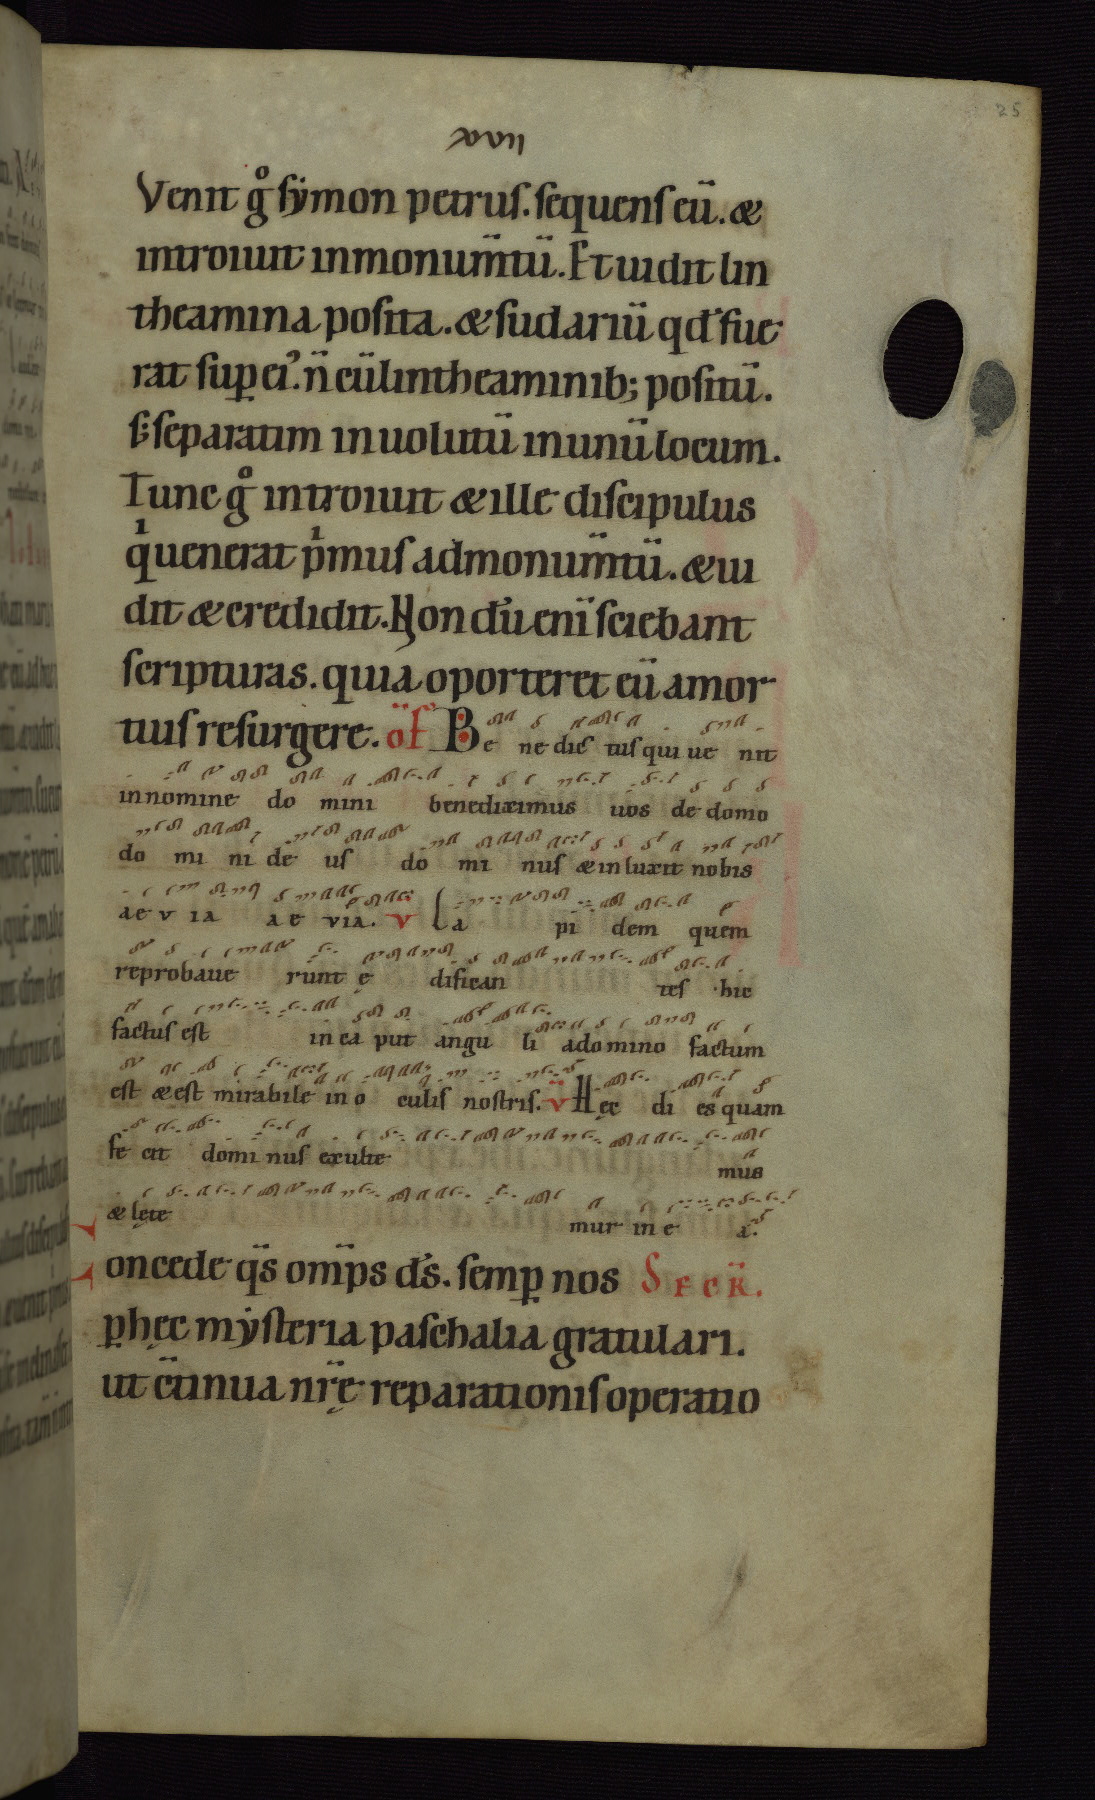 25
xvii
Venit g̊ sẏmon petrus. sequens eū. &
introiuit inmonum̄tū. Et uidit lin
theamina posita. & sudariū qd̄ fue
rat sup ei᾽. n̄ cū lintheaminib; positū.
s; separatim inuolutū inunū locum.
Tunc g̊ introiuit & ille discipulus
qi uenerat pimus admonum̄tū. & ui
dit & credidit. Non dū enī sciebant
scripturas. quia oporteret eū amor
tuis resurgere. of Be ne dic tus qui ue nit
innomine do mini benediximus uos de domo
do mi ni de us do mi nus & inluxit nobis
ae v ia a e via. v La pi dem quem
reprobaue runt ę difican tes hic
factus est in ca put angu li adomino factum
est & est mirabile in o culis nostris. v Hęc di es quam
fe cit domi nus exulte mus
& lęte mur in e a.
oncede qs̄ om̄ps ds̄. semp nos Secr̄.
p hęc mẏsteria paschalia gratulari.
ut c̄tinua nr̄ę reparationis operatio